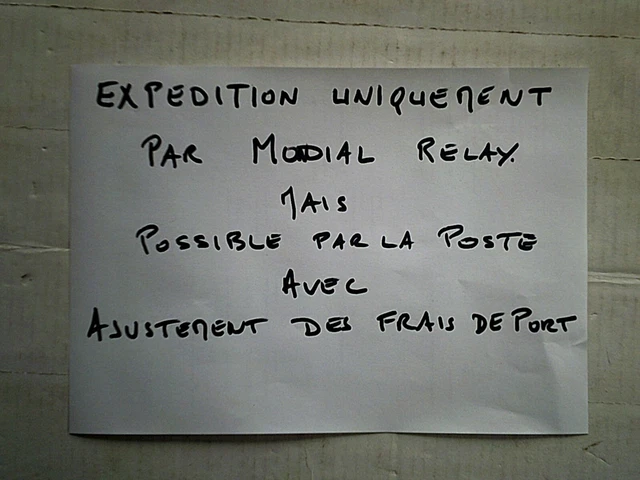 EXPEDITION UNIQUEMENT
PAR MONDIAL RELAY.
MAIS
POSSIBLE PAR LA POSTE
AVEC
AJUSTEMENT DES FRAIS DE PORT